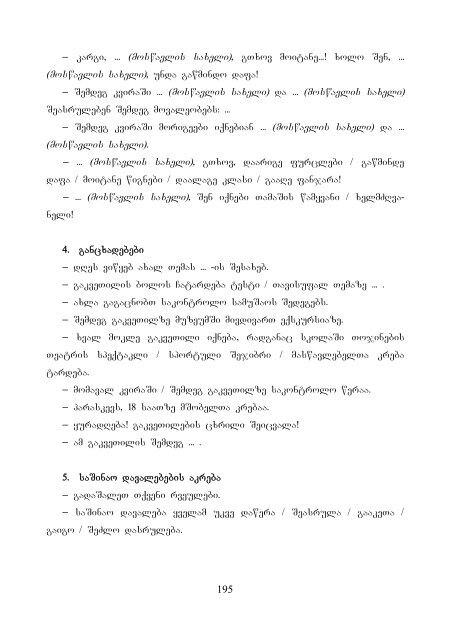 – კარგი, ... (მოსწავლის სახელი), გთხოვ მოიტანე...! ხოლო შენ, ...
(მოსწავლის სახელი), უნდა გაწმინდო დაფა!
– შემდეგ კვირაში ... (მოსწავლის სახელი) და ... (მოსწავლის სახელი)
შეასრულებენ შემდეგ მოვალეობებს: ...
– შემდეგ კვირაში მორიგეები იქნებიან ... (მოსწავლის სახელი) და ...
(მოსწავლის სახელი).
– ... (მოსწავლის სახელი), გთხოვ, დაარიგე ფურცლები / გაწმინდე
დაფა / მოიტანე წიგნები / დაალაგე კლასი / გააღე ფანჯარა!
– ... (მოსწავლის სახელი), შენ იქნები თამაშის წამყვანი / ხელმძღვა-
ნელი!
4. განცხადებები
– დღეს ვიწყებ ახალ თემას ... -ის შესახებ.
– გაკვეთილის ბოლოს ჩატარდება ტესტი / თავისუფალ თემაზე ... .
– ახლა გაგაცნობთ საკონტროლო სამუშაოს შედეგებს.
– შემდეგ გაკვეთილზე მუზეუმში მივდივართ ექსკურსიაზე.
– ხვალ მოკლე გაკვეთილი იქნება, რადგანაც სკოლაში თოჯინების
თეატრის სპექტაკლი / სპორტული შეჯიბრი / მასწავლებელთა კრება
ტარდება.
– მომავალ კვირაში / შემდეგ გაკვეთილზე საკონტროლო წერაა.
– პარასკევს, 18 საათზე მშობელთა კრებაა.
– ყურადღება! გაკვეთილების ცხრილი შეიცვალა!
– ამ გაკვეთილის შემდეგ ... .
5. საშინაო დავალებების აკრება
– გადაშალეთ თქვენი რვეულები.
– საშინაო დავალება ყველამ უკვე დაწერა / შეასრულა / გააკეთა /
გაიგო / შეძლო დასრულება.
195